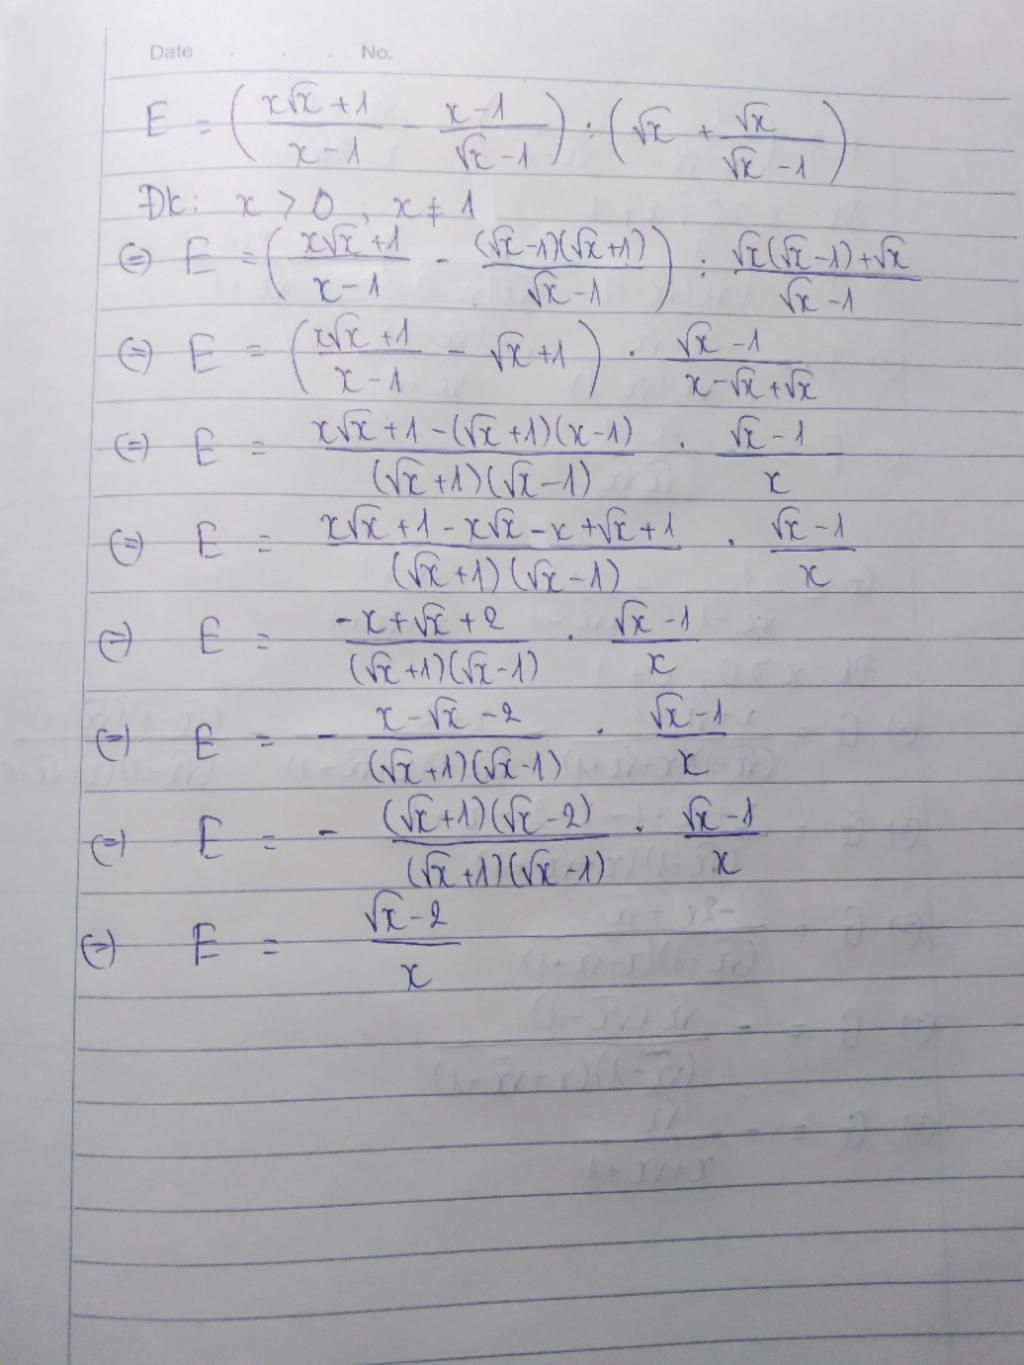 Date . . . No.
E = (\frac{x√x + 1}{x - 1} - \frac{x - 1}{√x - 1}) : (√x + \frac{√x}{√x - 1})
Đk: x > 0 ; x ≠ 1
(=) E = (\frac{x√x + 1}{x - 1} - \frac{(√x - 1)(√x + 1)}{√x - 1}) : \frac{√x(√x - 1) + √x}{√x - 1}
(=) E = (\frac{x√x + 1}{x - 1} - √x + 1) . \frac{√x - 1}{x - √x + √x}
(=) E = \frac{x√x + 1 - (√x + 1)(x - 1)}{(√x + 1)(√x - 1)} . \frac{√x - 1}{x}
(=) E = \frac{x√x + 1 - x√x - x + √x + 1}{(√x + 1)(√x - 1)} . \frac{√x - 1}{x}
(=) E = \frac{-x + √x + 2}{(√x + 1)(√x - 1)} . \frac{√x - 1}{x}
(=) E = - \frac{x - √x - 2}{(√x + 1)(√x - 1)} . \frac{√x - 1}{x}
(=) E = - \frac{(√x + 1)(√x - 2)}{(√x + 1)(√x - 1)} . \frac{√x - 1}{x}
(=) E = \frac{√x - 2}{x}